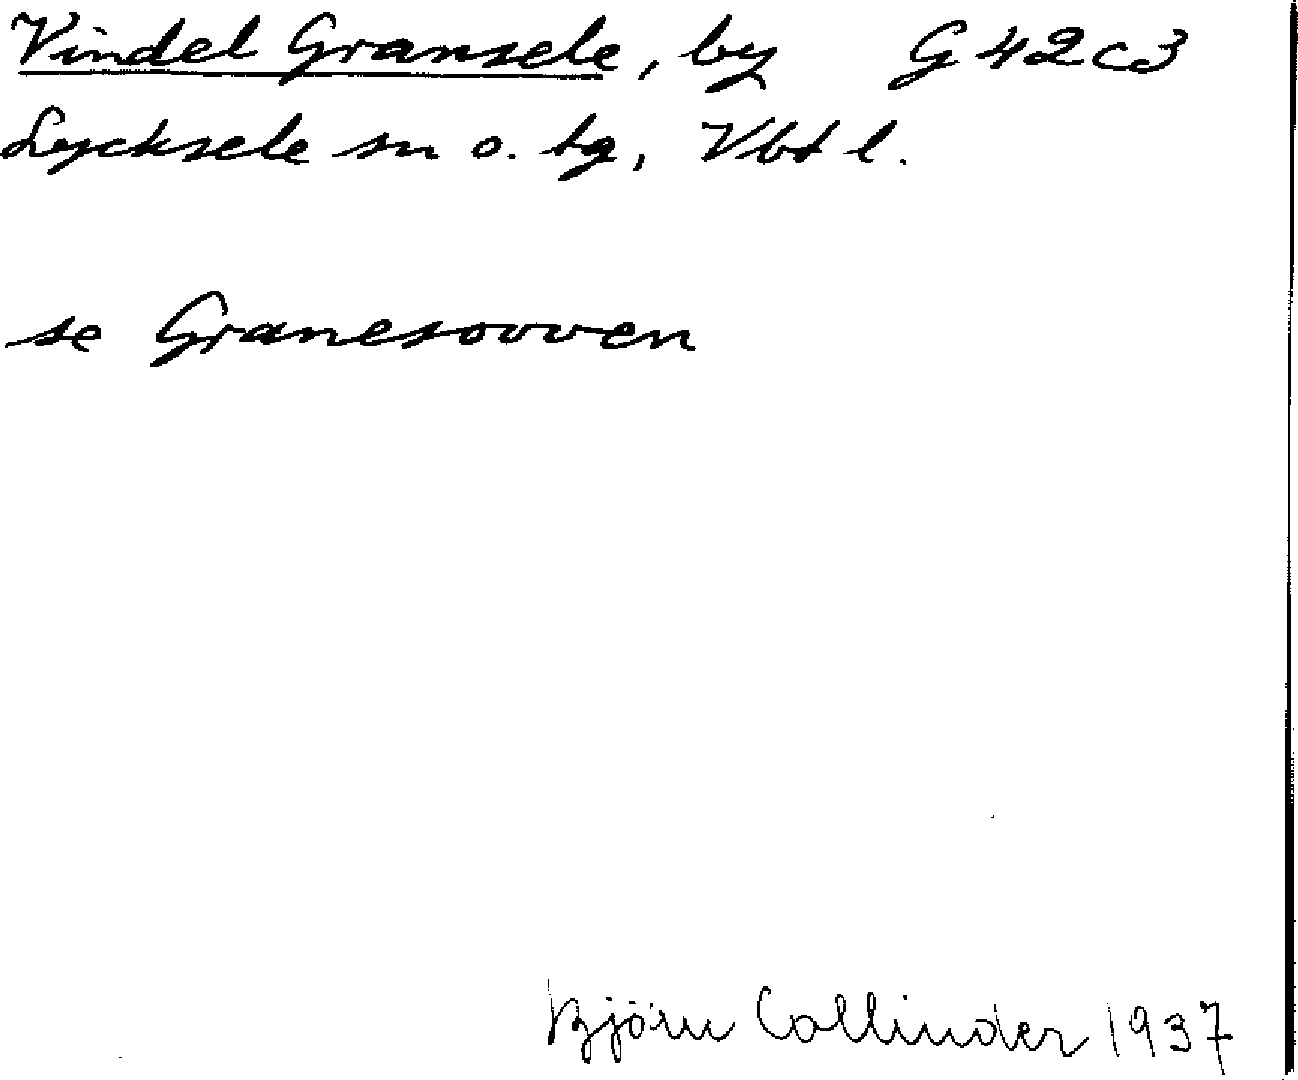 Vindel Gransele, by G 42 c 3
Lycksele sn o. tg, Vbt l.
se Granesovven
Björn Collinder 1937